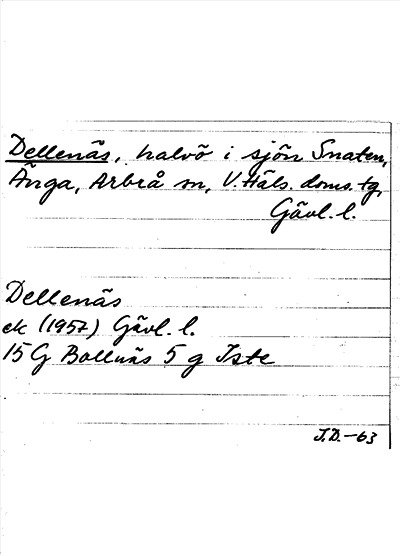 Dellenäs, halvö i sjön Snaten,
Änga, Arbrå sn, V. Häls. doms. tg,
Gävl. l.
Dellenäs
ek (1957) Gävl. l.
15 G Bollnäs 5 g Iste
J.D.-63